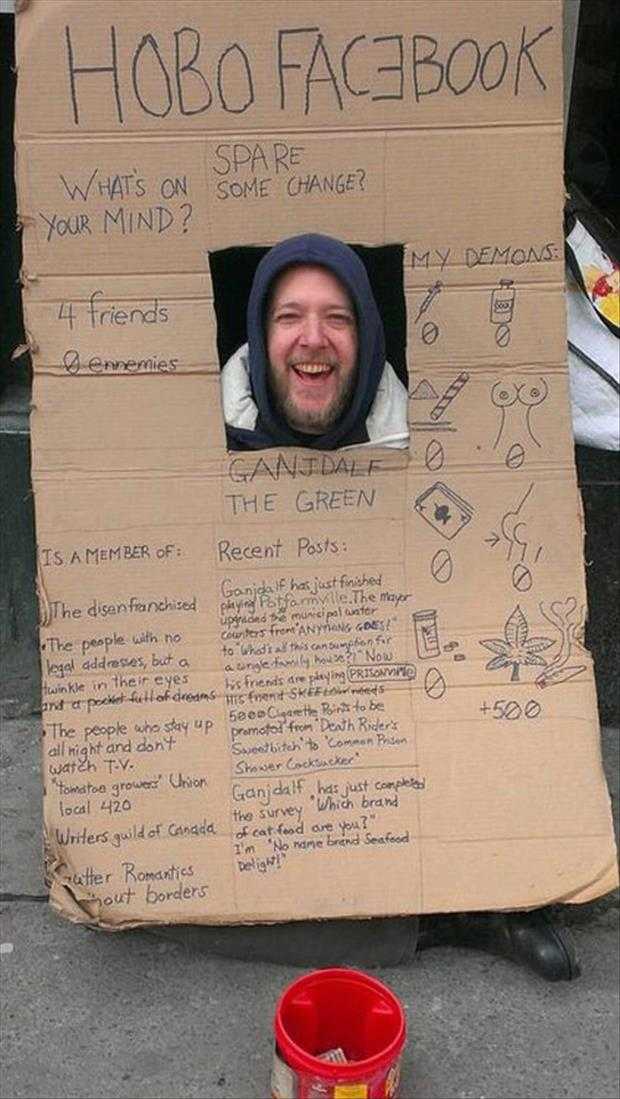 HOBO FACEBOOK
WHAT'S ON
YOUR MIND?
SPARE
SOME CHANGE?
4 friends
0 ennemies
MY DEMONS:
0 0
0 0
0 0
0
+500
GANJDALF
THE GREEN
IS A MEMBER OF:
The disenfranchised
• The people with no
legal addresses, but a
twinkle in their eyes
and a pocket full of dreams
• The people who stay up
all night and don't
watch T.V.
"tomatoe growers" Union
local 420
Writers guild of Canada
Gutter Romantics
out borders
Recent Posts:
Ganjdalf has just finished
playing Potfarmville. The mayor
upgraded the municipal water
counters from "ANYTHING GOES!"
to "What's all this consumption for
a single family house?!" Now
his friends are playing PRISONVILLE
His friend needs
5000 Cigarette Points to be
promoted from "Death Rider's
Sweetbitch" to "Common Prison
Shower Cocksucker"
Ganjdalf has just completed
the survey "Which brand
of cat food are you?"
I'm "No name brand Seafood
Delight!"